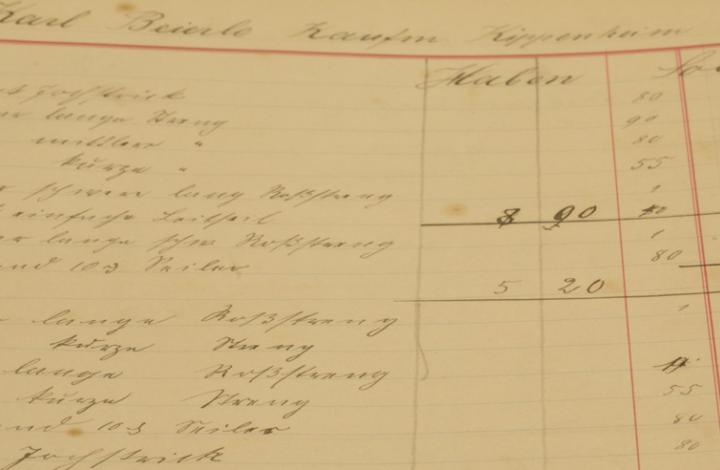 Karl Beierle Kaufm Kippenheim
Haben
Jochstrick 80
lange Streng 90
mittlere " 80
kurze " 55
schwere lang Roßstreng 1
einfache Leitseil 8 90
lange schw Roßstreng 1
103 Seiler 80
5 20
lange Roßstreng 1
kurze Streng
lange Roßstreng
kurze Streng 55
103 Seiler 80
Jochstrick 80